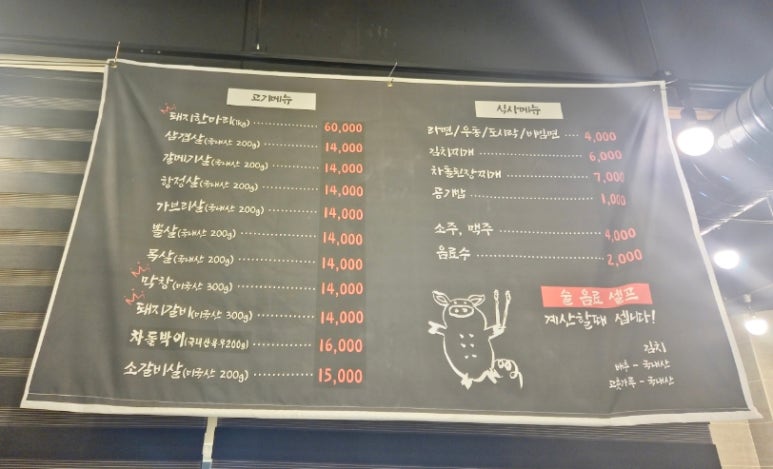 고기메뉴
돼지한마리(1kg) ············ 60,000
삼겹살(국내산 200g) ············ 14,000
갈매기살(국내산 200g) ············ 14,000
항정살(국내산 200g) ············ 14,000
가브리살(국내산 200g) ············ 14,000
뽈살(국내산 200g) ············ 14,000
목살(국내산 200g) ············ 14,000
막창(미국산 300g) ············ 14,000
돼지갈비(미국산 300g) ············ 14,000
차돌박이(국내산육우200g) ············ 16,000
소갈비살(미국산 200g) ············ 15,000
식사메뉴
라면/우동/도시락/비빔면 ···· 4,000
김치찌개 ············ 6,000
차돌된장찌개 ············ 7,000
공기밥 ············ 1,000
소주, 맥주 ············ 4,000
음료수 ············ 2,000
술 음료 셀프
계산할때 셉니다!
김치
배추 - 국내산
고춧가루 - 국내산